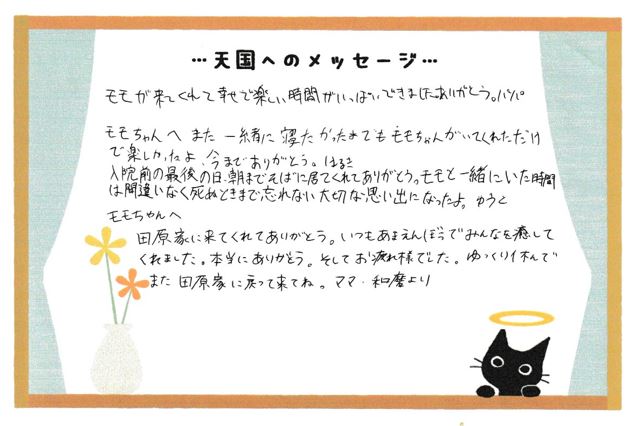 …天国へのメッセージ…
モモが来てくれて幸せで楽しい時間がいっぱいできましたありがとう。パパ
モモちゃんへ また 一緒に 寝たかったよ でもモモちゃんがいてくれただけ
で楽しかったよ 今までありがとう。はるき
入院前の最後の日、朝までそばに居てくれてありがとう。モモと一緒にいた時間
は間違いなく死ぬときまで忘れない大切な思い出になったよ。ゆうく
モモちゃんへ
田原家に来てくれてありがとう。いつもあまえんぼうでみんなを癒して
くれました。本当にありがとう。そしてお疲れ様でした。ゆっくり休んで
また 田原家に戻って来てね。ママ・和磨より